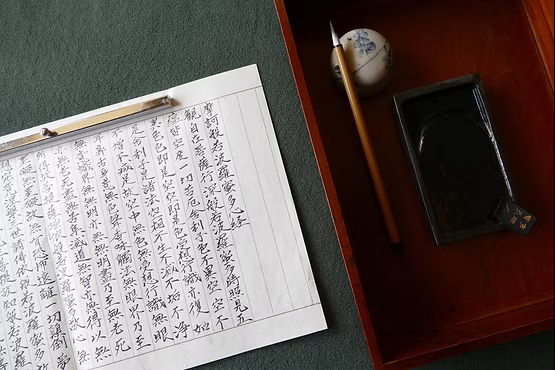 摩訶般若波羅蜜多心経
觀自在菩薩行深般若波羅蜜多時照見五
蘊皆空度一切苦厄舎利子色不異空空不
異色色即是空空即是色受想行識亦復如
是舎利子是諸法空相不生不滅不垢不浄
不増不減是故空中無色無受想行識無眼
耳鼻舌身意無色聲香味觸法無眼界乃至
無意識界無無明亦無無明盡乃至無老死
亦無老死盡無苦集滅道無智亦無得以無
所得故菩提薩埵依般若波羅蜜多故心無
罣礙無罣礙故無有恐怖遠離一切顛倒夢